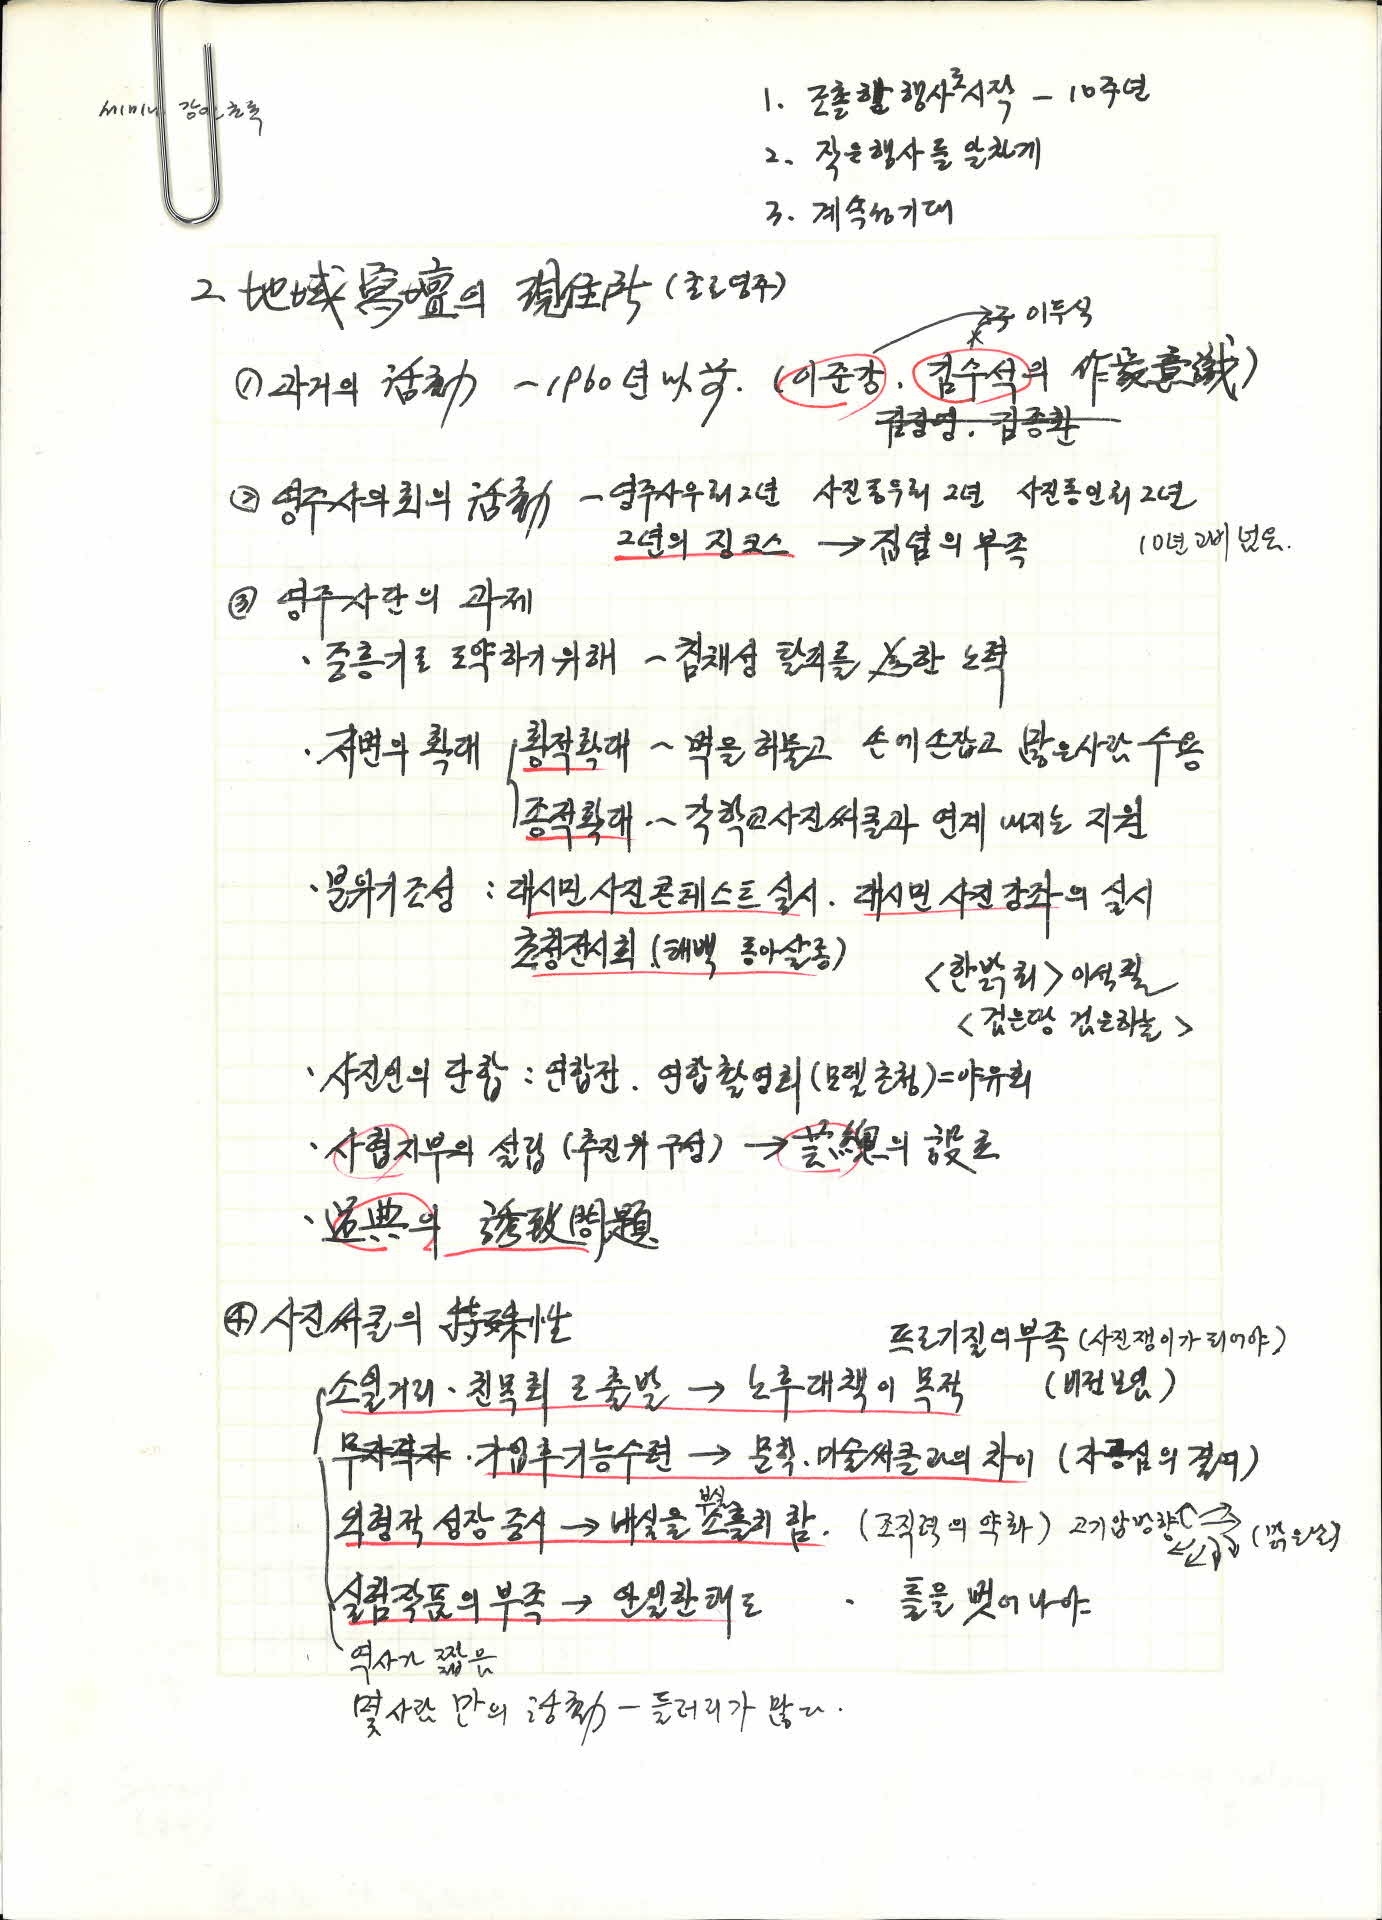 세미나 강연초록
1. 조촐한 행사로 시작 - 10주년
2. 작은행사를 알차게
3. 계속성기대
2. 地域寫壇의 現住所 (효로영주)
이두식
① 과거의 活動 ~1960년 以前. (이준강. 김수석의 作家意識)
김종환
② 영주사우회의 活動 ~영주사우회2년 사진동우회2년 사진동인회2년
2년의 징크스 → 집념의 부족 10년고비 넘음.
③ 영주사단의 과제
· 중흥기로 도약하기위해 ~ 침체성 탈피를 爲한 노력
· 저변의 확대 횡적확대 ~ 벽을 허물고 손에손잡고 젊은사람 수용
종적확대 ~ 각학교사진써클과 연계 내지는 지원
· 분위기조성 : 대시민사진콘테스트실시. 대시민 사진강좌의 실시
초청전시회 (태백 동아살롱)
<한밝회> 이석필
<검은땅 검은하늘>
· 사진인의 단합 : 연합전. 연합촬영회(모델초청)=야유회
· 사협지부의 설립 (추진위구성) → 의 設立
· 道典의 誘致問題
④ 사진써클의 特殊性
프로기질의부족 (사진쟁이가 되어야)
소일거리·친목회로출발 → 노후대책이 목적 (비전보임)
무자격자·가입후기능수련 → 문학.미술써클과의 차이 (자긍심의 결여)
부실
외형적 성장 중시 → 내실을 소홀히 함. (조직력의 약화) 고기압방향 (맑은날)
실험작품의 부족 → 안일한태도 · 틀을 벗어나야
역사가 짧음
몇사람 만의 活動 - 들러리가 많다.